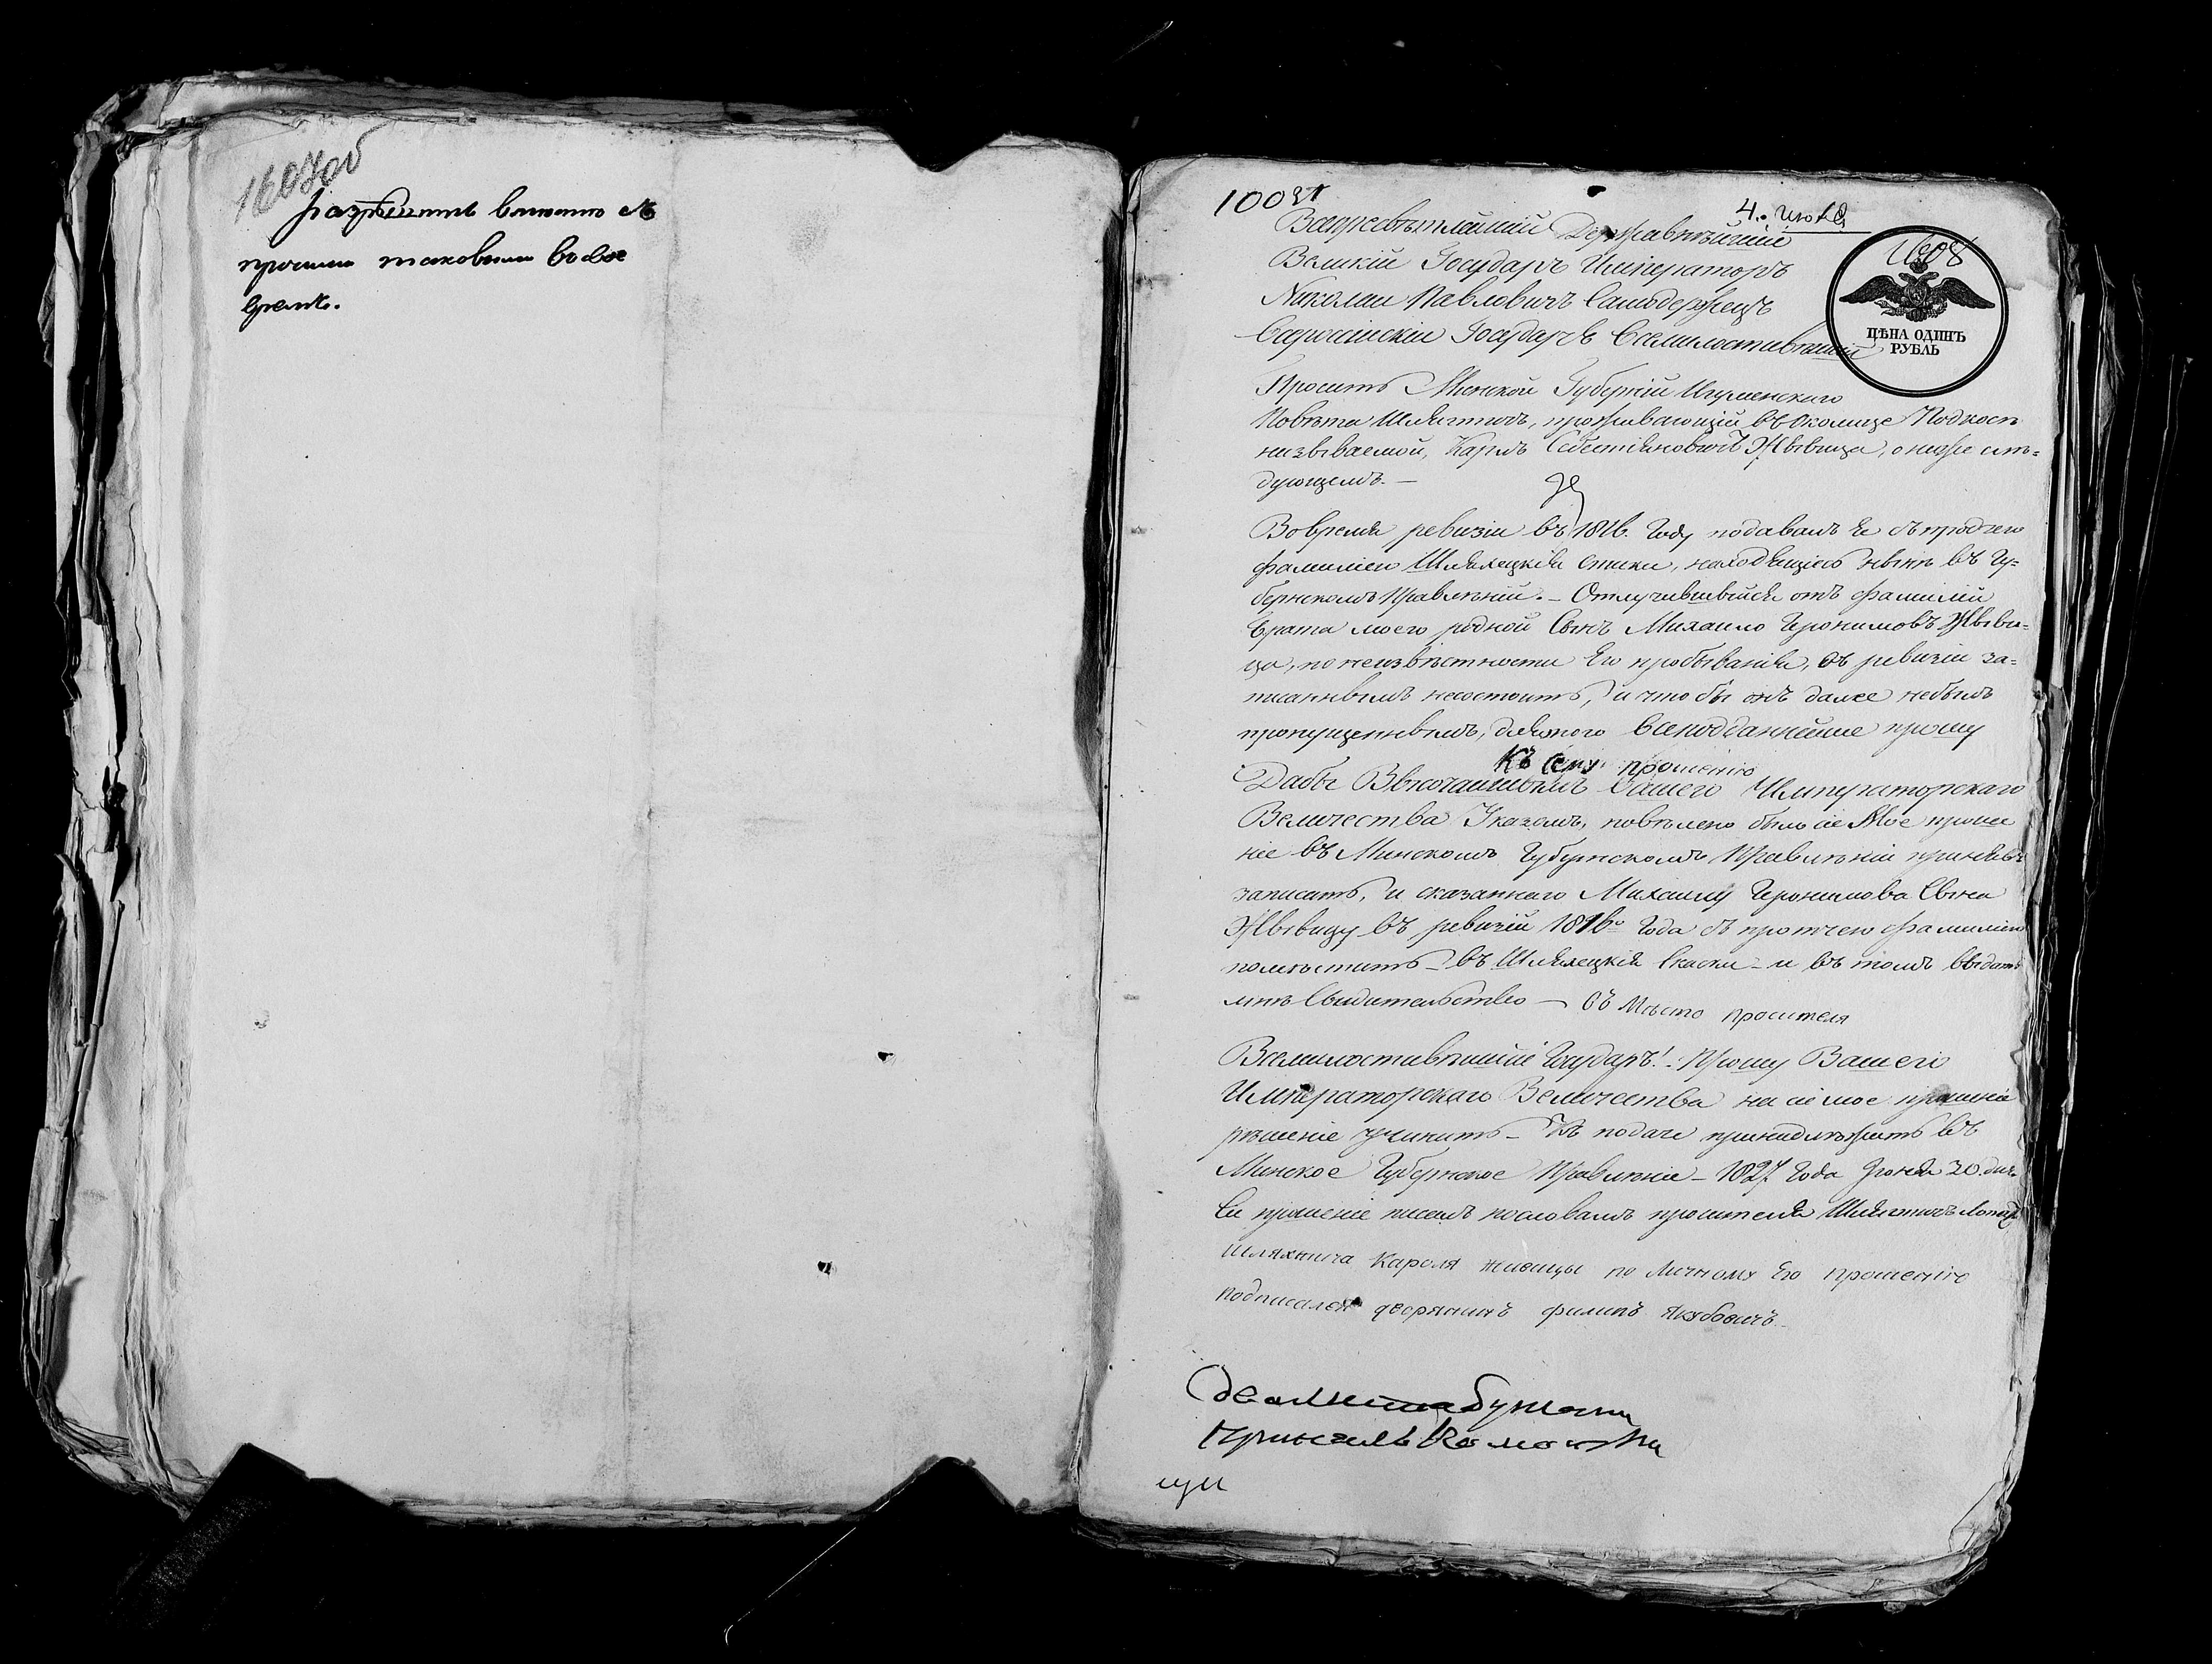 1607 об
прочими таковыми во свое
время.
10031
4. июля
1608
Всепресветлейший Державнейший
Великий Государь Император
Николай Павлович Самодержец
Всероссийский Государь Всемилостивейший
ЦѢНА ОДИНЪ
РУБЛЬ
Просить Минской Губернии Игуменского
Повѣта Шляхтичь, проживающий въ околице
называемой, Кароль Себестьяновичь Жывица, о ниже слѣ=
дующемъ. —
Во время ревизии въ 1816. Году подавалъ я съ прочею
фамилиею Шляхецкія скаски, находящіесь нынѣ въ Гу=
бернскомъ Правленіи. — Отлучившыйся отъ фамилии
брата моего родной Сынъ Михаило Иеронимовъ Жыви=
ца, по неизвѣстности Его пробыванія, въ ревизии за=
писаннымъ несостоитъ, и что бы онъ далее небылъ
пропущеннымъ, для того всеподданнейше прошу
Къ сему прошенію
Дабы Высочайшымъ Вашего Императорскаго
Величества Указомъ, повѣлено было сие Мое проше
ніе въ Минскомъ Губернскомъ Правленіи принявъ
записать, и сказанного Михаилу Иеронимова Сына
Жывицу въ ревизіи 1816го Года съ протчею фамиліею
помѣстить въ Шляхецкія скаски и въ томъ выдать
мнѣ Свидительство — въ Мѣсто просителя
Всемилостивѣйшій Государь! Прошу Вашего
Императорскаго Величества на сие мое прошеніе
рѣшеніе учинить — Къ подаче принадлежитъ въ
Минское Губернское Правленіе — 1827 Года Июня 30. дня.
Сие прошеніе писалъ по словамъ просителя Шляхтичъ
шляхтича Кароля живицы по личному Его прошенію
подписался дворянинъ филипъ якубовичъ